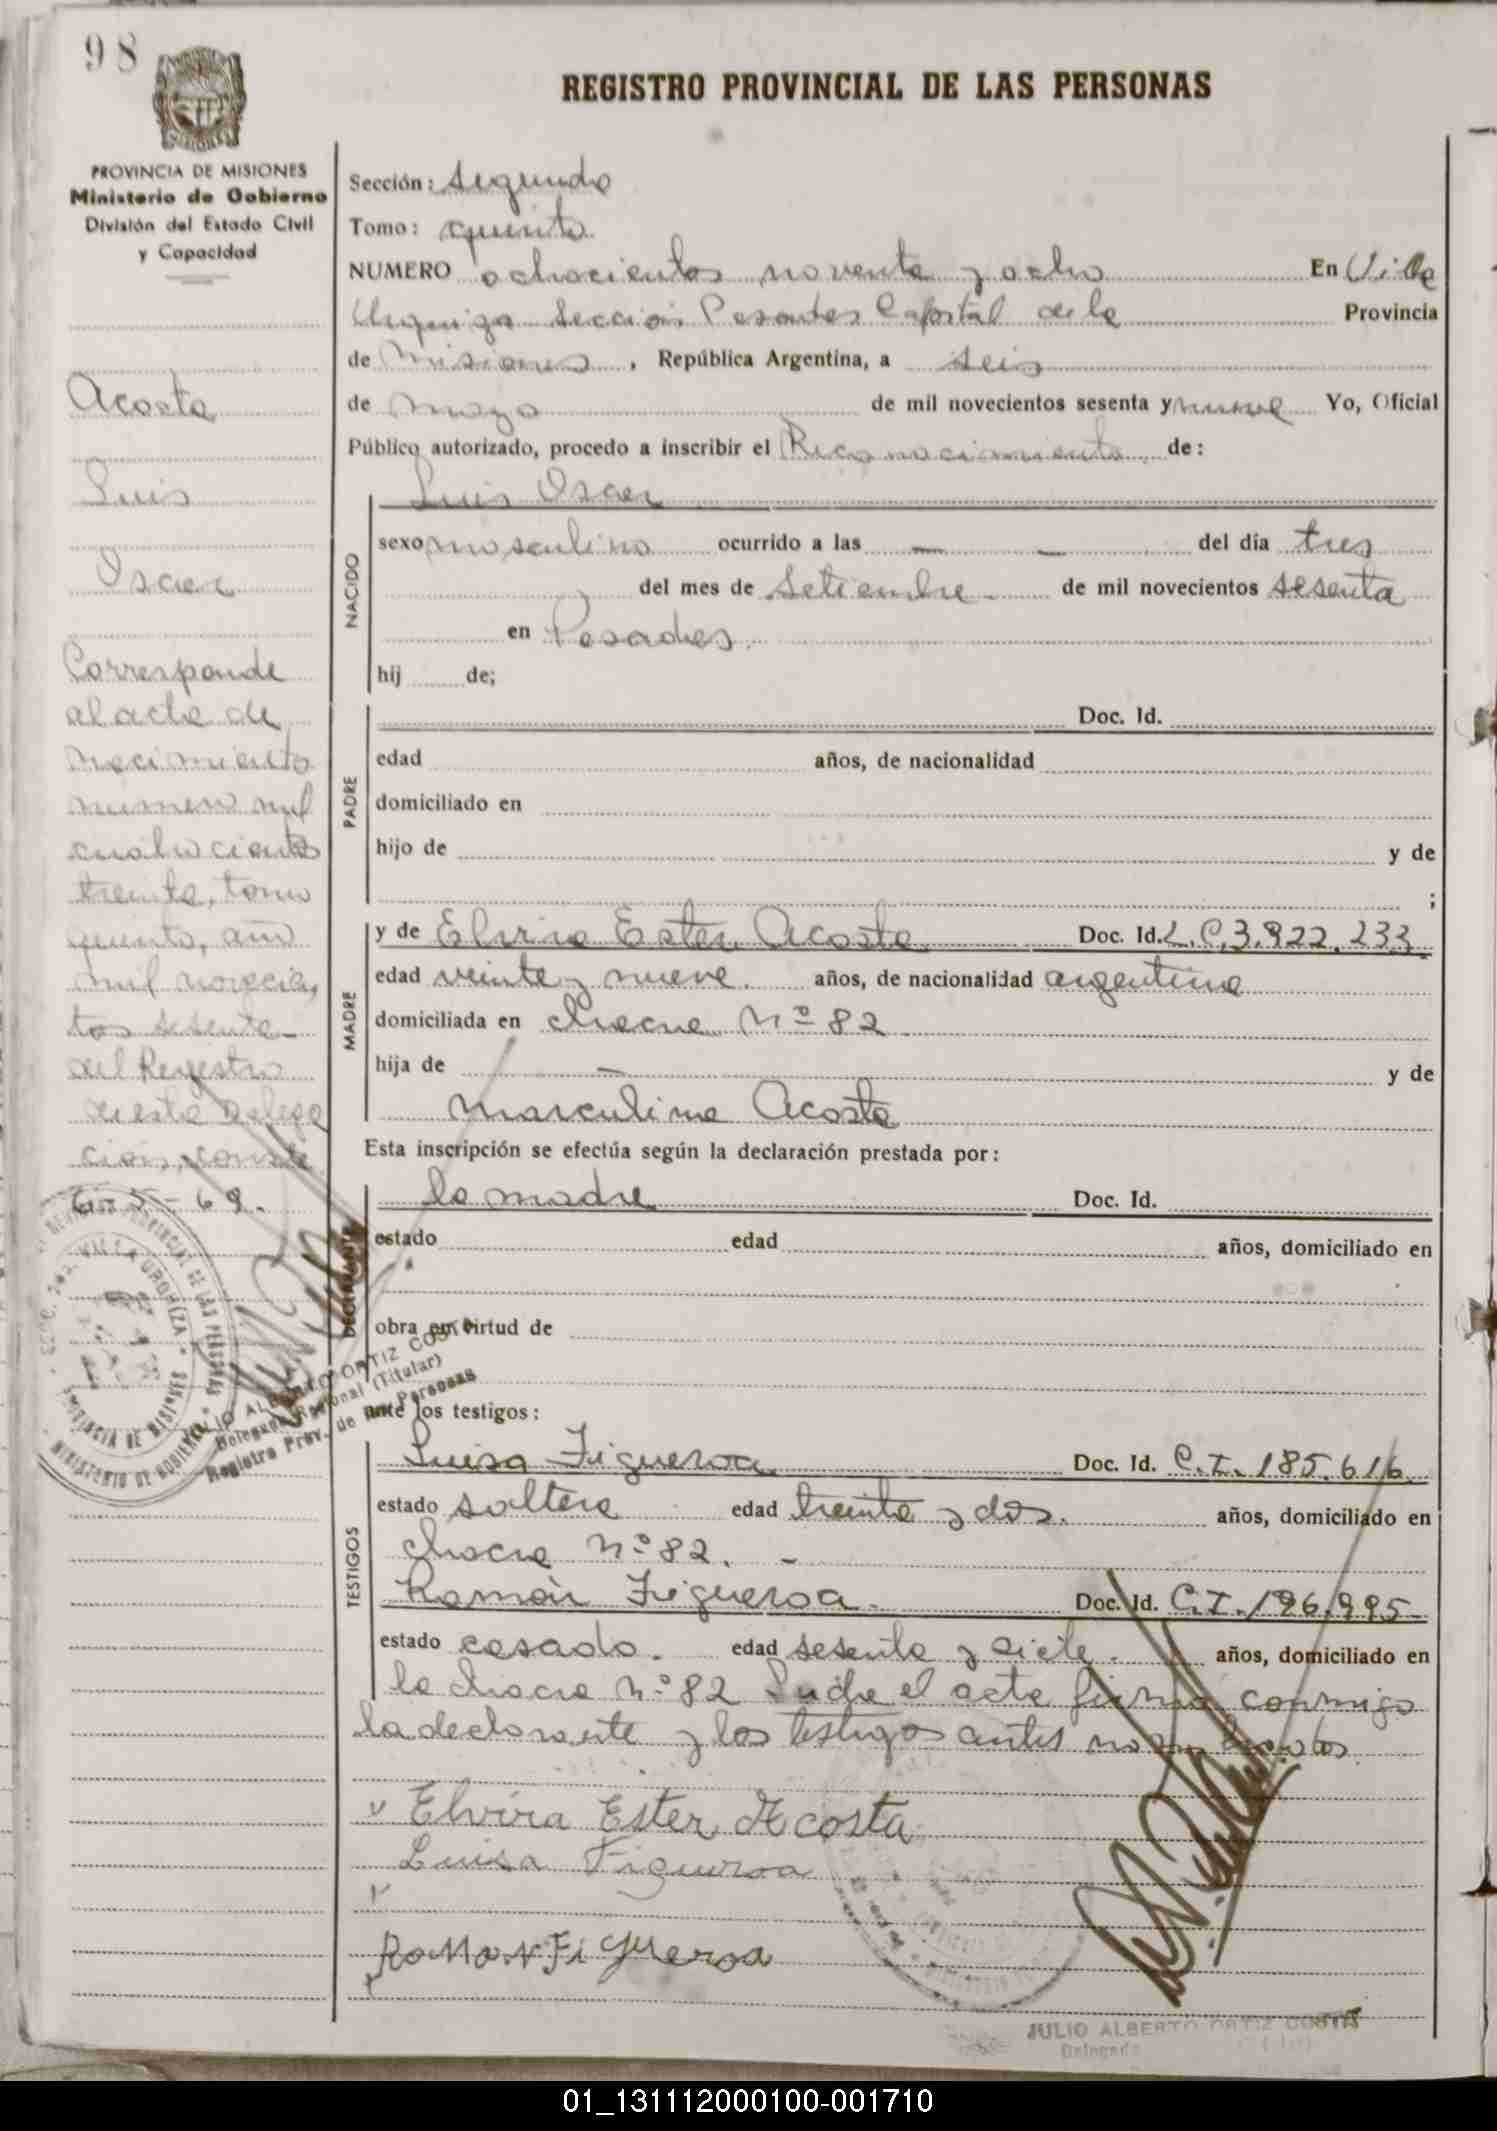 98
REGISTRO PROVINCIAL DE LAS PERSONAS
PROVINCIA DE MISIONES
Ministerio de Gobierno
División del Estado Civil
y Capacidad
Acosta
Luis
Oscar
Corresponde
al acta de
nacimiento
numero mil
cuatrocientos
treinta, tomo
quinto, año
mil novecien
tos sesenta
del Registro
de esta Delega
cion, conste
6-5-69.
Sección: segunda
Tomo: quinto
NUMERO ochocientos noventa y ocho En Villa
Urquiza Sección Posadas Capital de la Provincia
de Misiones, República Argentina, a seis
de mayo de mil novecientos sesenta y nueve Yo, Oficial
Público autorizado, procedo a inscribir el Reconocimiento de:
NACIDO
Luis Oscar
sexo masculino ocurrido a las — — del día tres
del mes de Setiembre de mil novecientos sesenta
en Posadas.
hij de;
PADRE
Doc. Id.
edad años, de nacionalidad
domiciliado en
hijo de y de
;
MADRE
y de Elvira Ester Acosta Doc. Id. L.C.3.922.233
edad veinte y nueve. años, de nacionalidad argentina
domiciliada en chacra Nº 82
hija de — y de
Marculina Acosta
Esta inscripción se efectúa según la declaración prestada por:
DECLARANTE
la madre Doc. Id.
estado edad años, domiciliado en
obra en virtud de
ante los testigos:
JULIO ALBERTO ORTIZ COSTA
Delegado Regional (Titular)
Registro Prov. de las Personas
TESTIGOS
Luisa Figueroa Doc. Id. C.I. 185.616
estado soltera edad treinta y dos. años, domiciliado en
chacra nº 82. -
Ramón Figueroa. Doc. Id. C.I. 196.995
estado casado. edad sesenta y siete. años, domiciliado en
la chacra nº 82 el acta firma conmigo
la declarante y los testigos antes nombrados
Elvira Ester Acosta
Luisa Figueroa
RaMon Figueroa
JULIO ALBERTO ORTIZ COSTA
Delegado
01_131112000100-001710